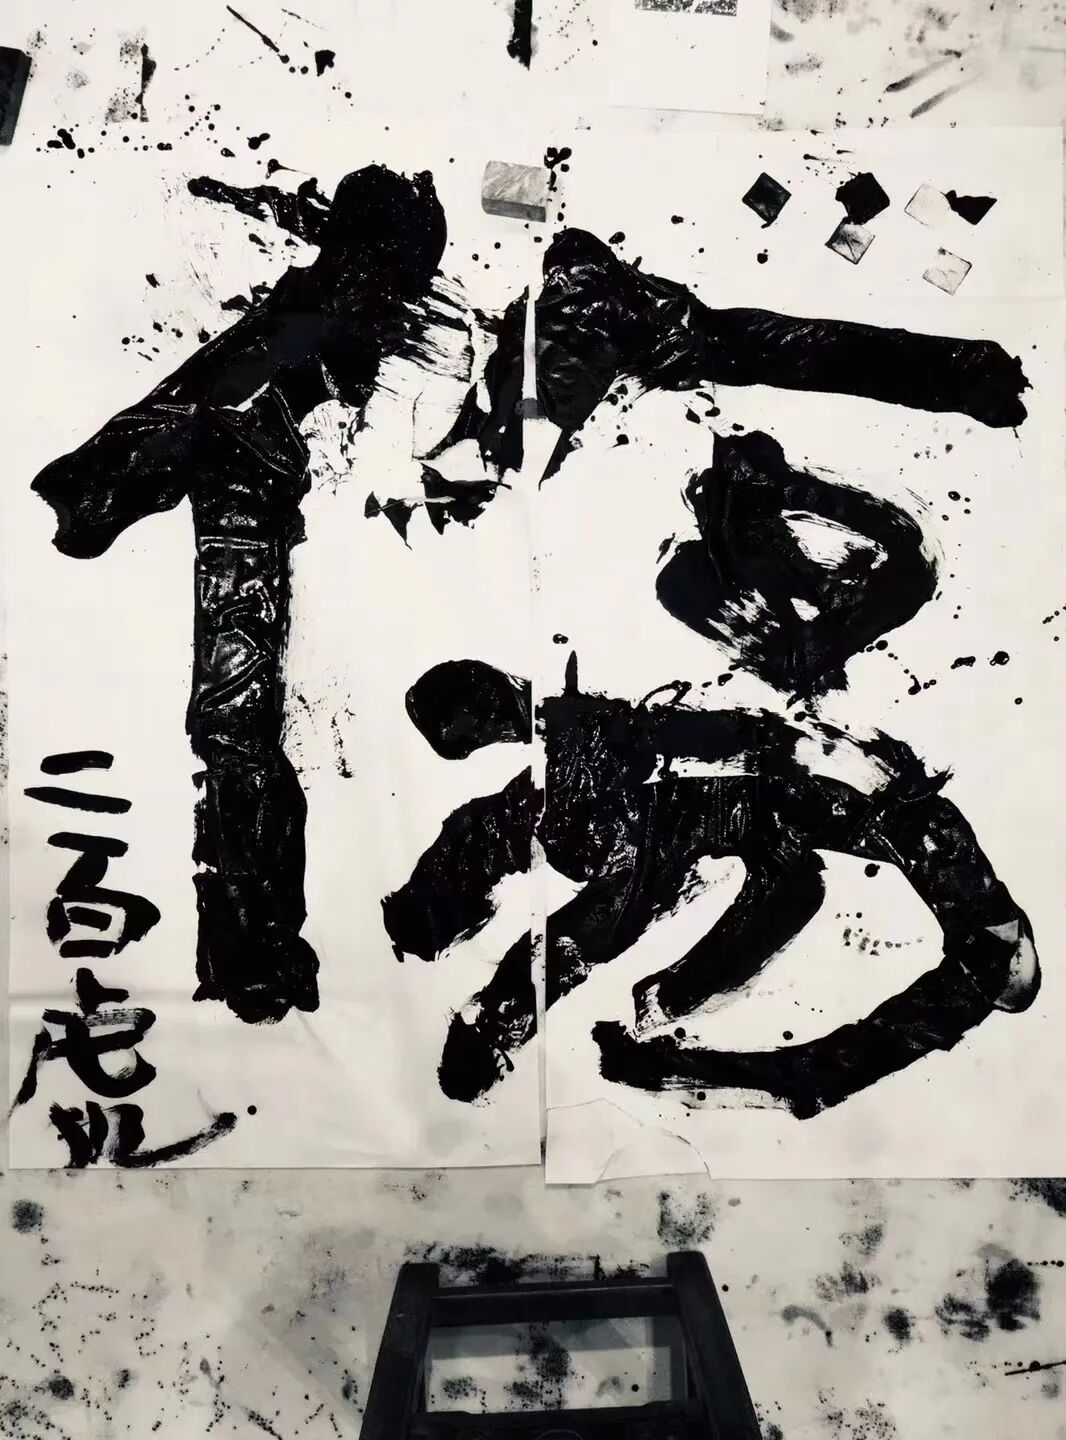 傷
二百虎